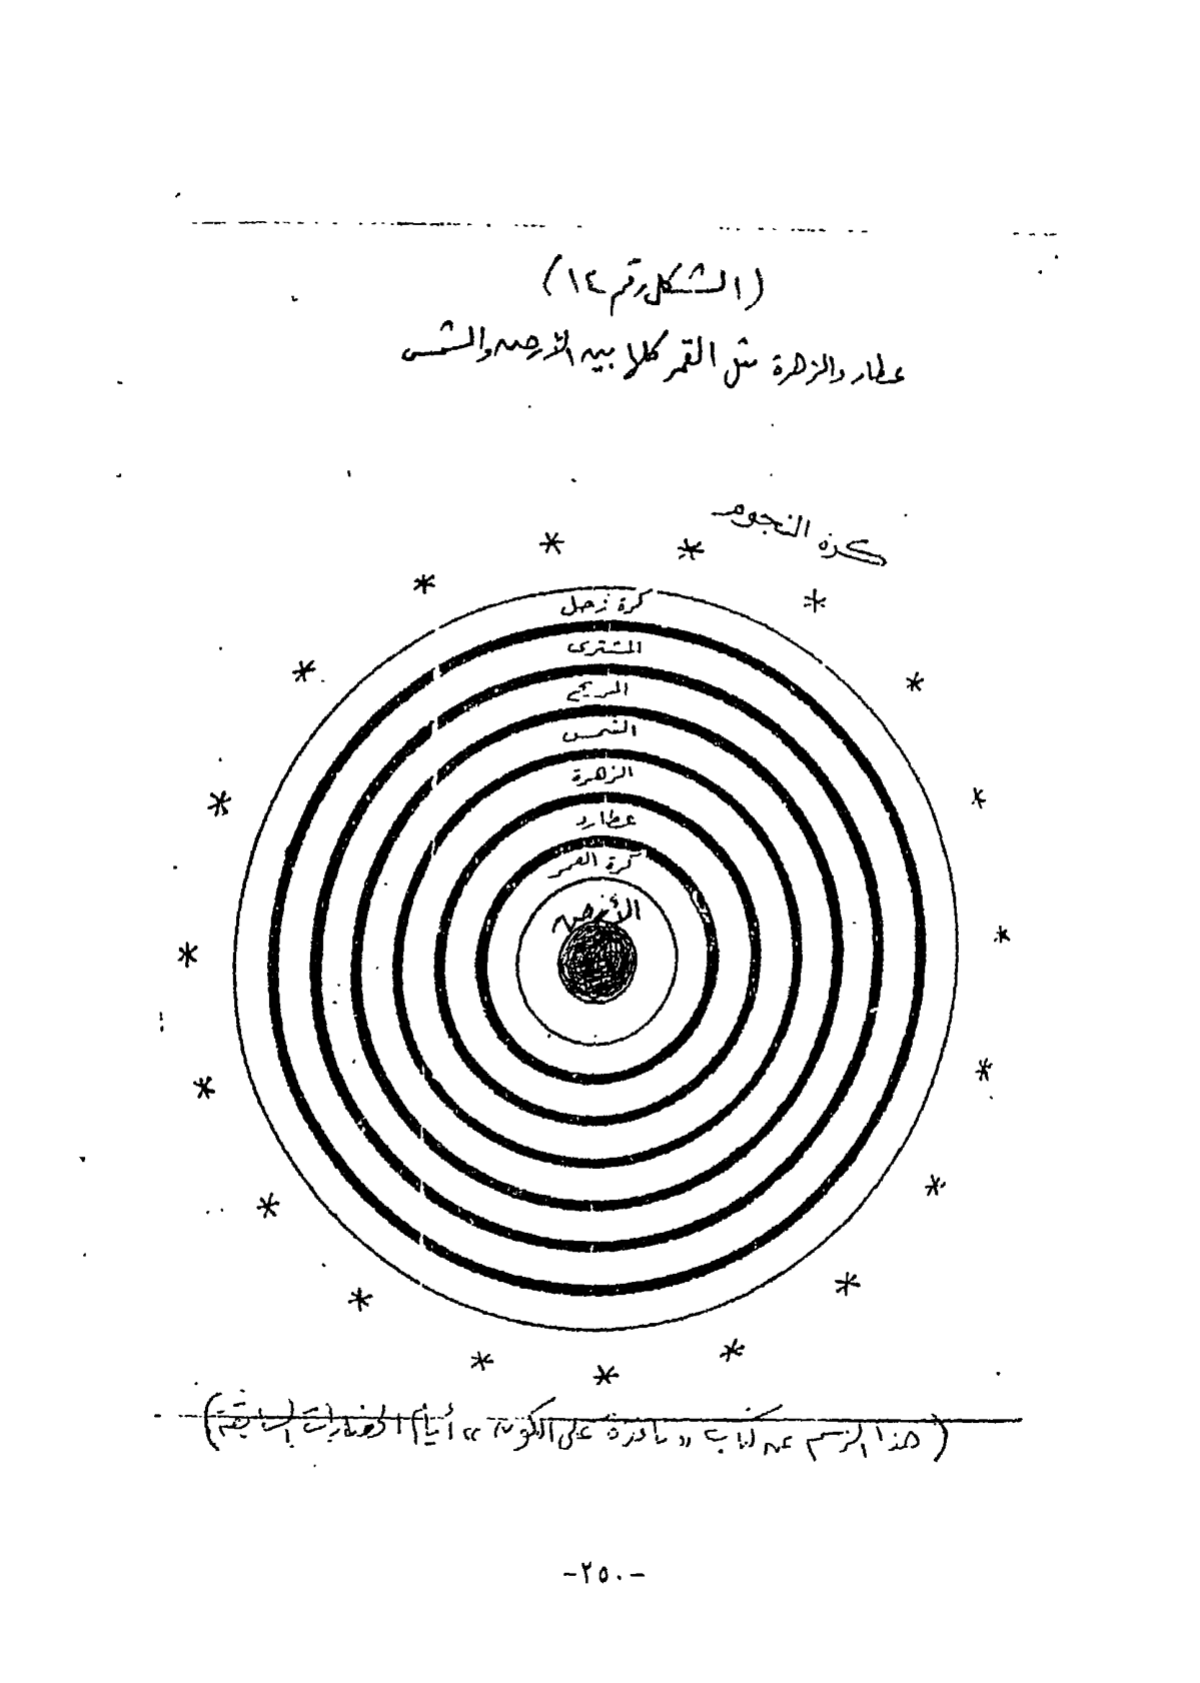 (الشكل رقم ١٤)
عطارد والزهرة مثل القمر كلها بين الأرض والشمس
كرة النجوم
كرة زحل
المشترى
المريخ
الشمس
الزهرة
عطارد
كرة القمر
الأرض
(هذا الرسم عن كتاب « نافذة على الكون » أيام الحضارات السابقة)
-٢٥٠-